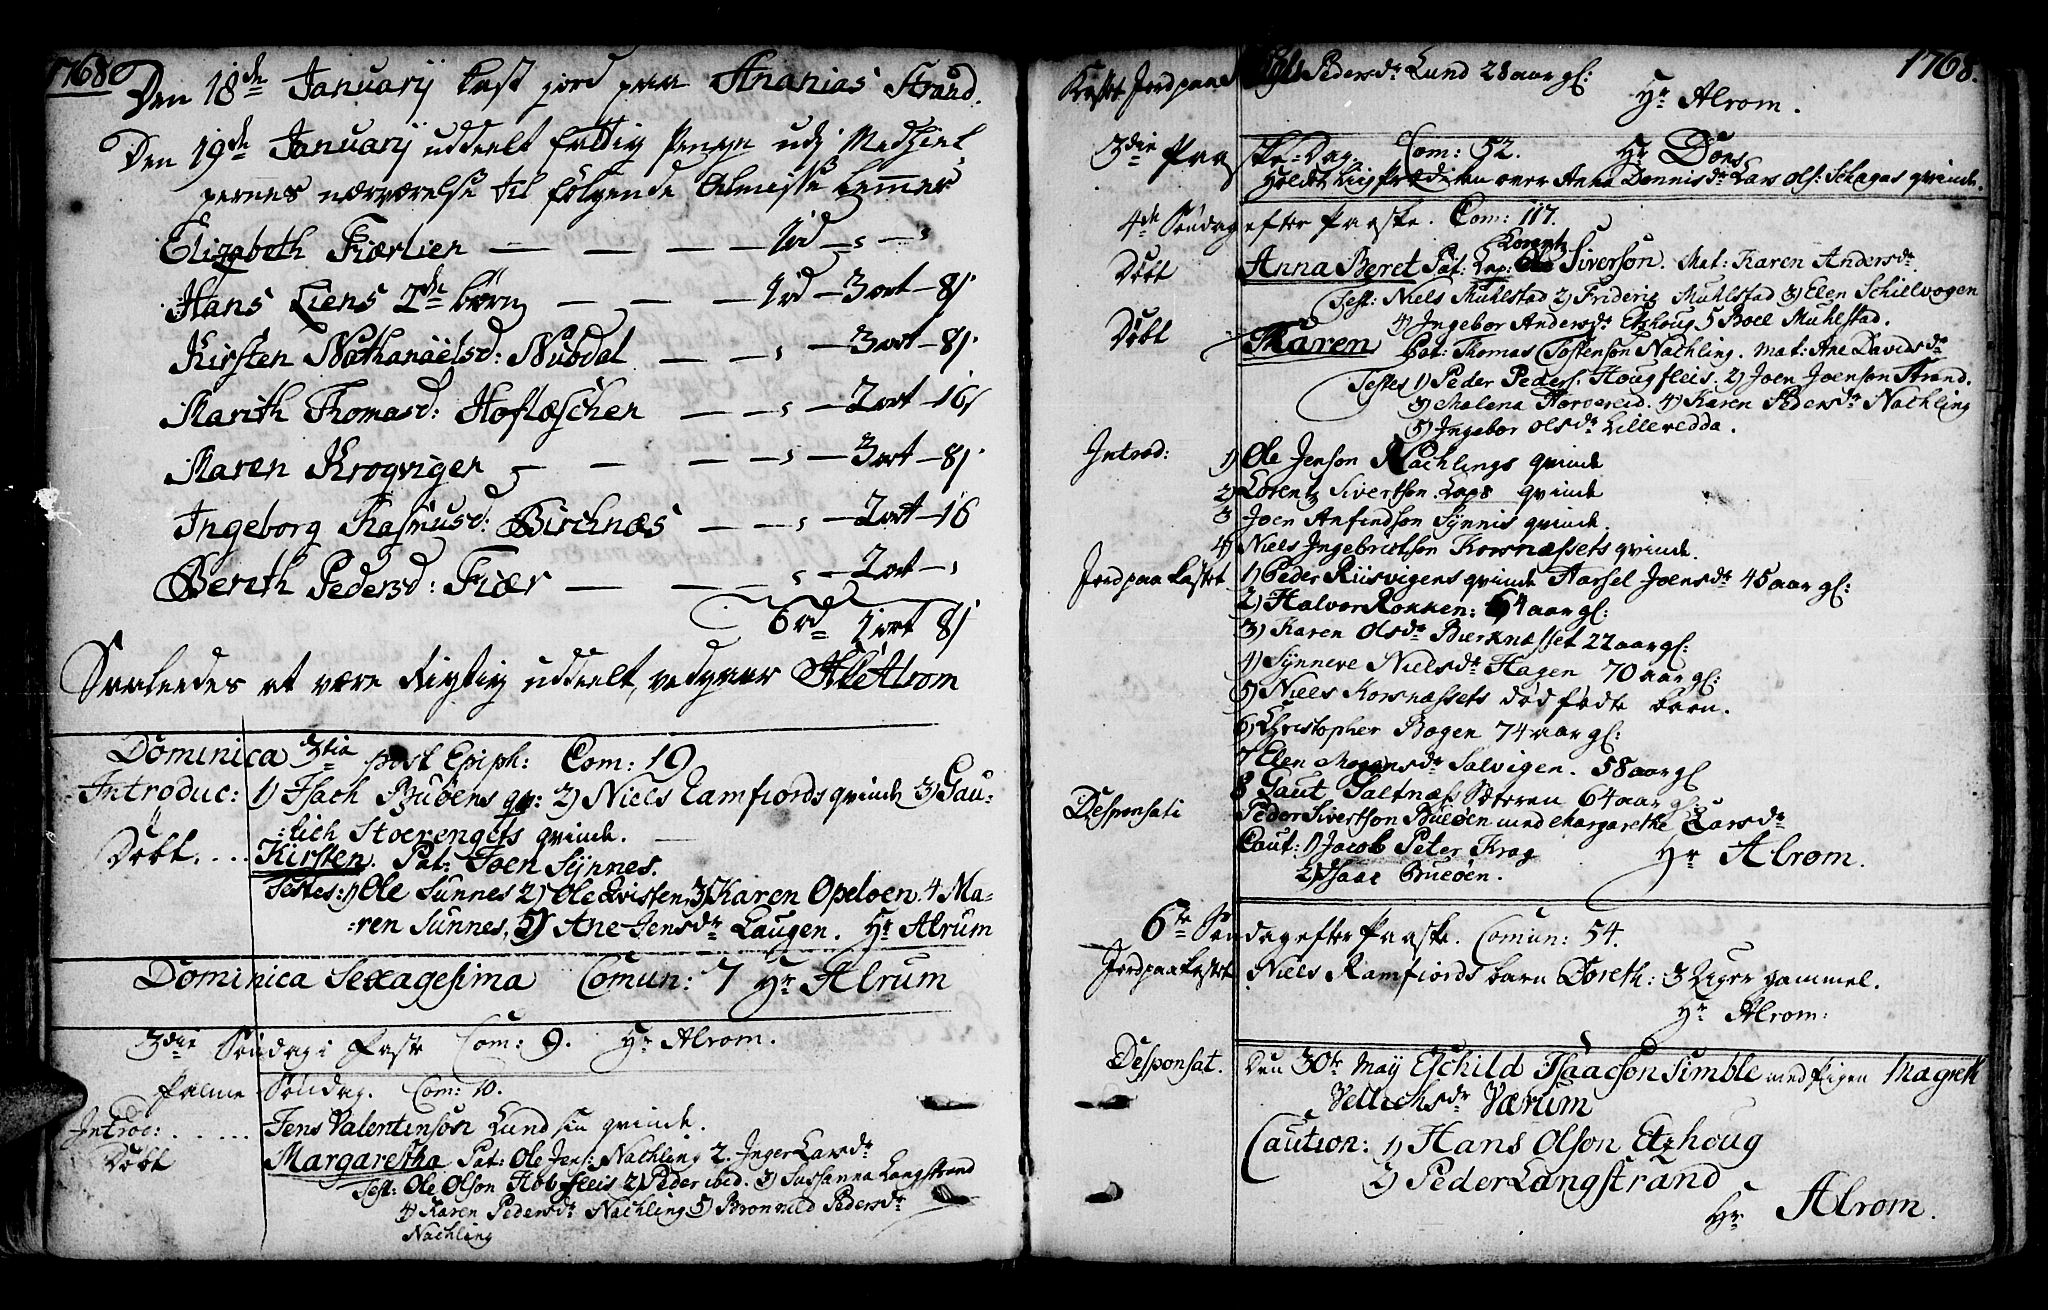 1768
Den 18de Januarij kast jord paa Ananias Strand.
Den 19de Januarij uddeelt fattig Penge udj Medhiel-
pernes nærværelse til følgende Almisse Lemmer
Elizabeth Fiærlien — — — — 1rd — , — ,
Hans Liens 2de børn — — — 1rd — 3ort — 8s
Kirsten Nathanaëlsd: Nubdal — — , — 3ort — 8s
Marith Thomasd: Hoflæscher — — , — 2ort — 16s
Maren Krogviger — — — , — 3ort — 8s
Ingeborg Rasmusd: Birchnæs — — , — 2ort — 16
Berith Pedersd: Fiær — — , — 2ort — ,
6rd 1ort 8s
Saaleedes at være rigtig uddeelt, vedgaaer Alrom
Dominica 3tia post Epiph: Com: 19
Introduc: 1) Isach Buøens qv: 2) Niels Ramfiords qvinde 3) Gau-
:lich Stoerengets qvinde.
Döbt.... Kirsten. Pat: Joen Synnes.
Testes: 1) Ole Sunnes 2) Ole Qvisten 3) Karen Opeloen 4 Ma-
:ren Sunnes, 5) Ane Jensdr Laugen. Hr Alrum
Dominica Sexagesima Comun: 7 Hr Alrum
3die Søndag i Faste Com: 9. Hr Alrom.
Palme Søndag. Com: 10.
Introc: ...... Jens Valentinson Lund sin qvinde.
Döbt Margaretha Pat: Ole Jens: Nachling 2. Inger Larsdr
Test: Ole Olson Hobfleis 2) Peder ibid. 3) Sussanna Langstrand
4) Karen Pedersdr Nachling 5) Bronnild Pedersdr
Nachling
1768.
Kastet Jord paa Pedersdr Lund 28 aar gl:
Hr Alrom.
3die Paaske-Dag. Com: 52. Hr Dons
Holdet Liigprædiken over Anna Dennisdr Lars Ols: Schagas qvinde.
4de Søndag efter Paaske. Com: 117.
Lorentz
Döbt Anna Beret Pat: Lap: Siverson. Mat: Karen Andersdr
Test: Niels Muhlstad 2) Frideric Muhlstad 3) Elen Schillvogen
4) Ingebor Andersdr Etzhoug 5 Boel Muhlstad.
Döbt Maren Pat: Thomas Tostenson Nachling. Mat: Ane Davidsdr
Testes 1) Peder Peders: Hougfleis. 2) Joen Joenson Strand.
3) Malena Horvereid. 4) Karen Pedersdr Nachling
5) Ingebor Olsdr Lilleredda.
Introd: 1) Ole Jenson Nachlings qvinde
2) Lorentz Sivertson Laps qvinde
3 Joen Anfindson Synnis qvinde.
4) Niels Ingebrictson Korsnæssets qvinde.
Jord paa Kastet 1) Peder Riisvigens qvinde Marsel Joensdr 45 aar gl:
2) Halvor Rokken: 64 aar gl:
3) Karen Olsdr Bierknæsset 22 aar gl:
4) Synneve Nielsdr Hagen 70 aar gl:
5) Niels Korsnæssets død fødte barn.
6) Christopher Bogen 74 aar gl:
7 Elen Mogensdr Salvigen. 58 aar gl
8 Gaut Saltnæs Sæteren 64 aar gl:
Desponsati Peder Sivertson Bueøen med Margarethe Larsdr
Caut: 1) Jacob Peter Krog Hr Alrom.
2) Isaac Bueøen.
6te Søndag efter Paaske. Comun: 54.
Jord paa Kastet Niels Ramfiords barn Doreth: 3 Uger gammel.
Hr Alrom:
Desponsat. Den 30te Maij Eschild Isaacson Simble med Pigen Magreth
Vellichsdr Værum
Caution: 1) Hans Olson Etzhoug
2) Peder Langstrand
Hr Alrom.